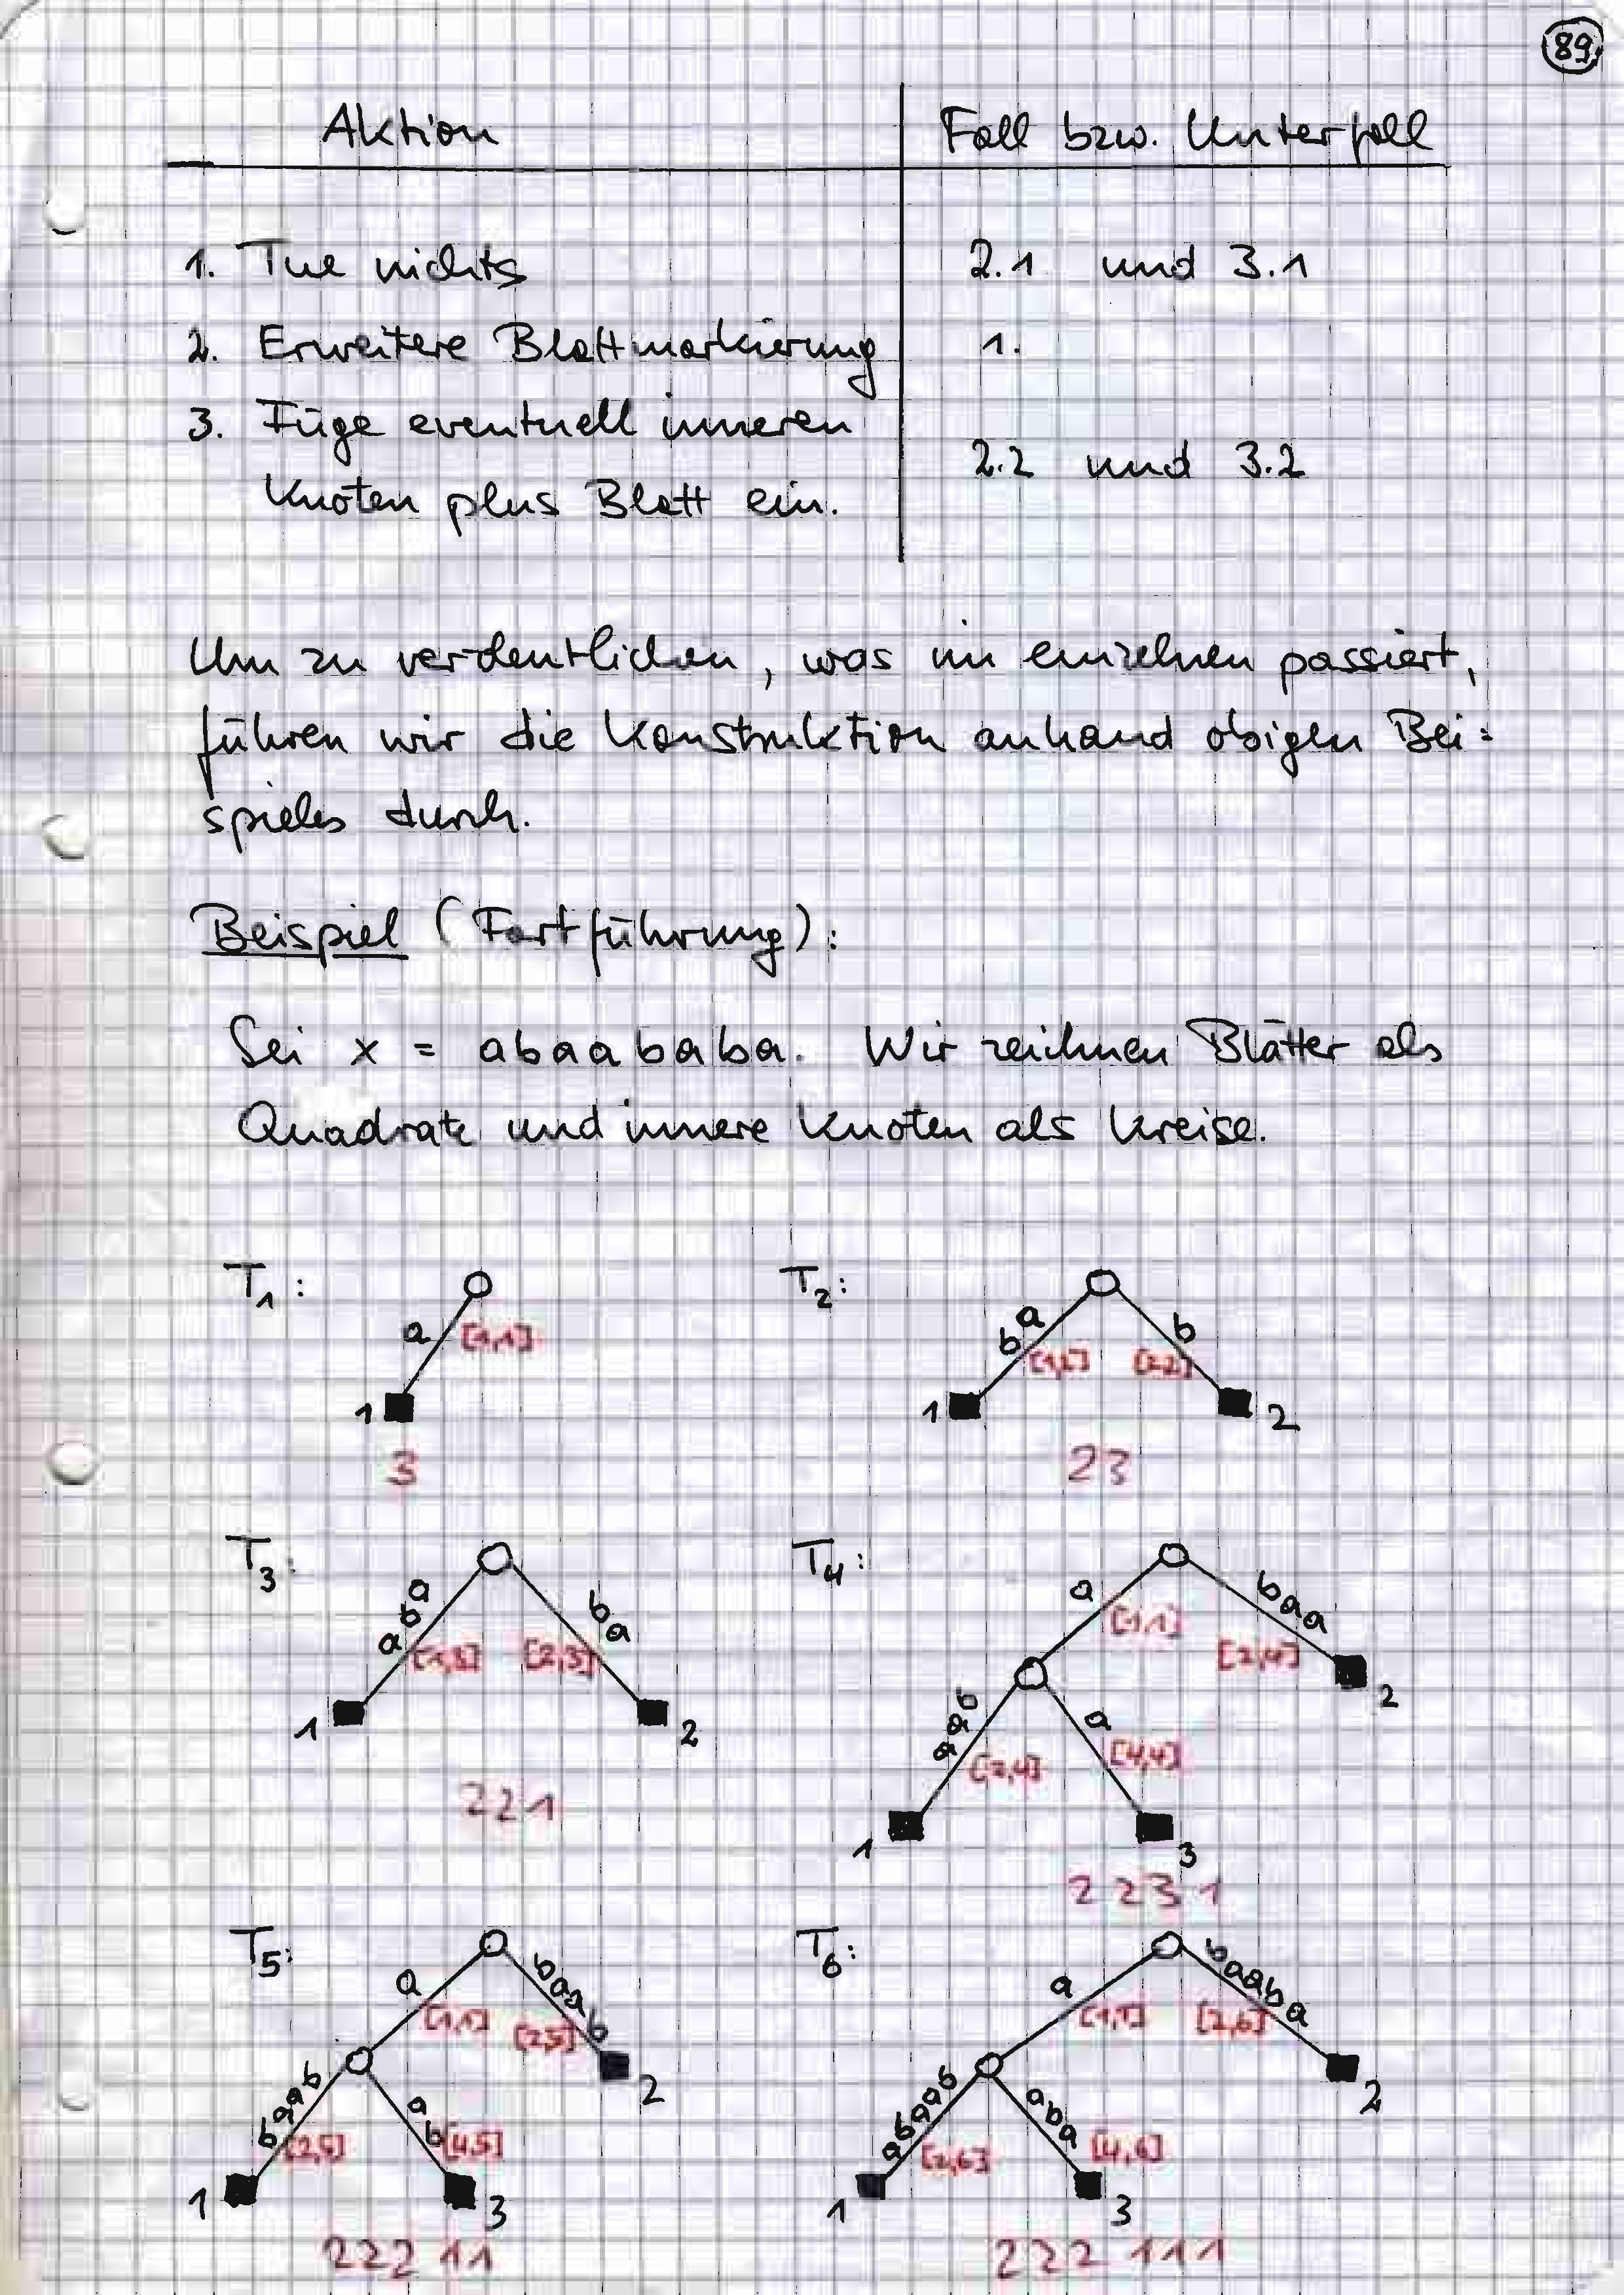 89.
Aktion Fall bzw. Unterfall
1. Tue nichts 2.1 und 3.1
2. Erweitere Blattmarkierung 1.
3. Füge eventuell inneren
Knoten plus Blatt ein. 2.2 und 3.2
Um zu verdeutlichen, was im einzelnen passiert,
führen wir die Konstruktion anhand obigen Bei=
spieles durch.
Beispiel (Fortführung):
Sei x = abaababa. Wir zeichnen Blätter als
Quadrate und innere Knoten als Kreise.
T1: T2:
a [1,1] a b [1,2] [2,2] b
1 1 2
3 23
T3: T4:
a b a [1,3] [2,3] b a
1 2
221
a [1,1] [2,4] baa
2
b a a [2,4] a [4,4]
1 3
2231
T5: T6:
a [1,1] [2,5] baab
2
baab [2,5] a b [4,5]
1 3
22211
a [1,1] [2,6] baaba
2
baaba [2,6] aba [4,6]
1 3
222111